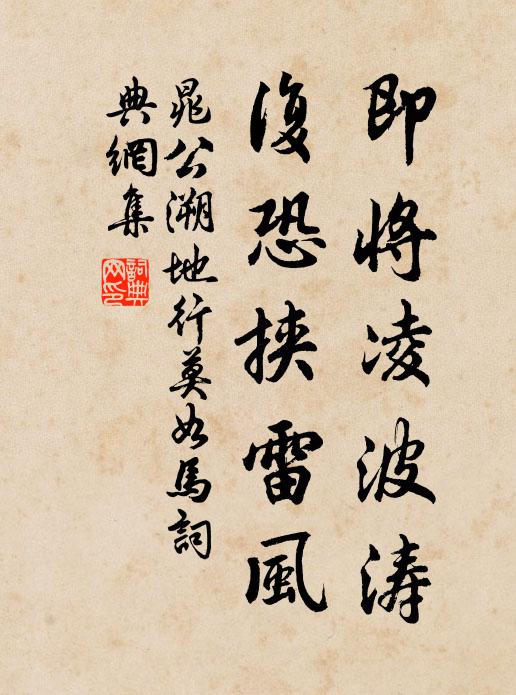 即將凌波濤
復恐挾雷風
晁公溯地行莫如馬詞
典網集
詞典
网印